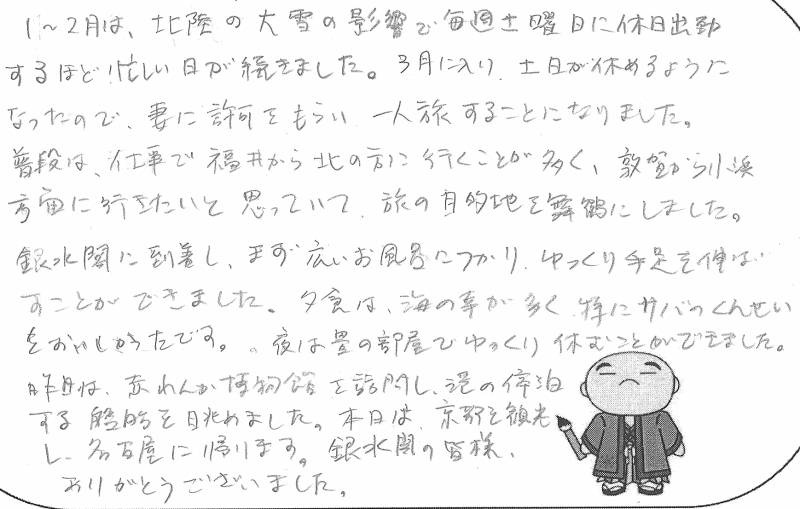 1～2月は、北陸の大雪の影響で毎週土曜日に休日出勤
するほど忙しい日が続きました。3月に入り、土日が休めるように
なったので、妻に許可をもらい 一人旅することになりました。
普段は、仕事で福井から北の方に行くことが多く、敦賀から小浜
方面に行きたいと思っていて、旅の目的地を舞鶴にしました。
銀水閣に到着し、まず広いお風呂につかり、ゆっくり手足を伸ば
すことができました。夕食は、海の幸が多く 特にサバのくんせい
をおいしかったです。。夜は畳の部屋でゆっくり休むことができました。
昨日は、赤れんが博物館を訪問し、港の停泊
する船舶を眺めました。本日は、京都を観光
し、名古屋に帰ります。銀水閣の皆様、
ありがとうございました。